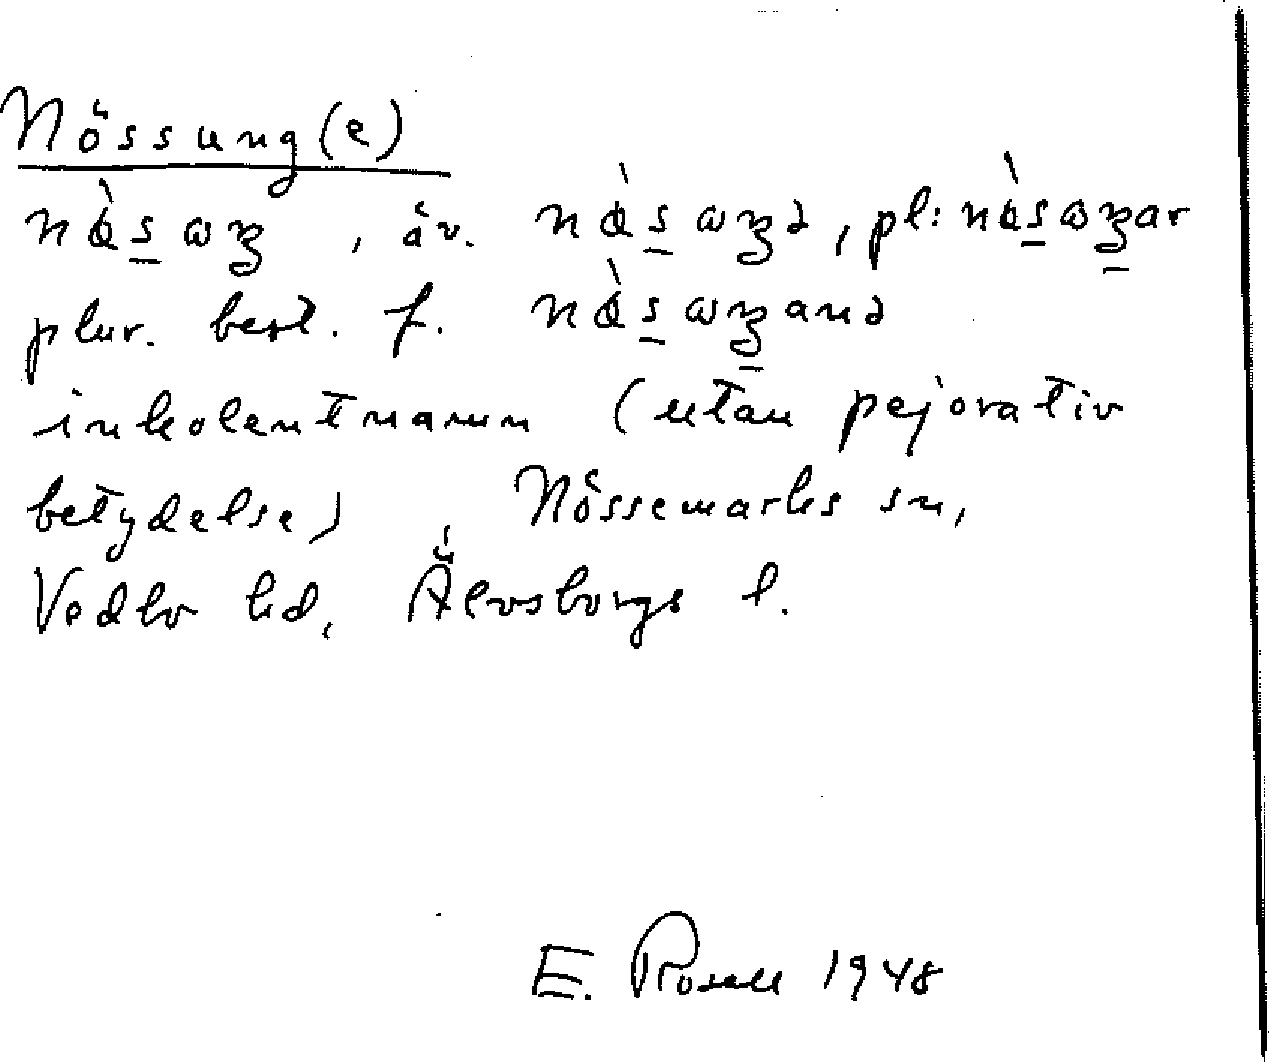 Nössung(e)
nɵ̀s̲ɷŋ, äv. nɵ̀s̲ɷŋə, pl: nɵ̀s̲ɷŋ̲ar
plur. best. f. nɵ̀s̲ɷŋ̲anə
inkolentnamn (utan pejorativ
betydelse), Nössemarks sn,
Vedbo hd, Älvsborgs l.
E. Rosell 1948